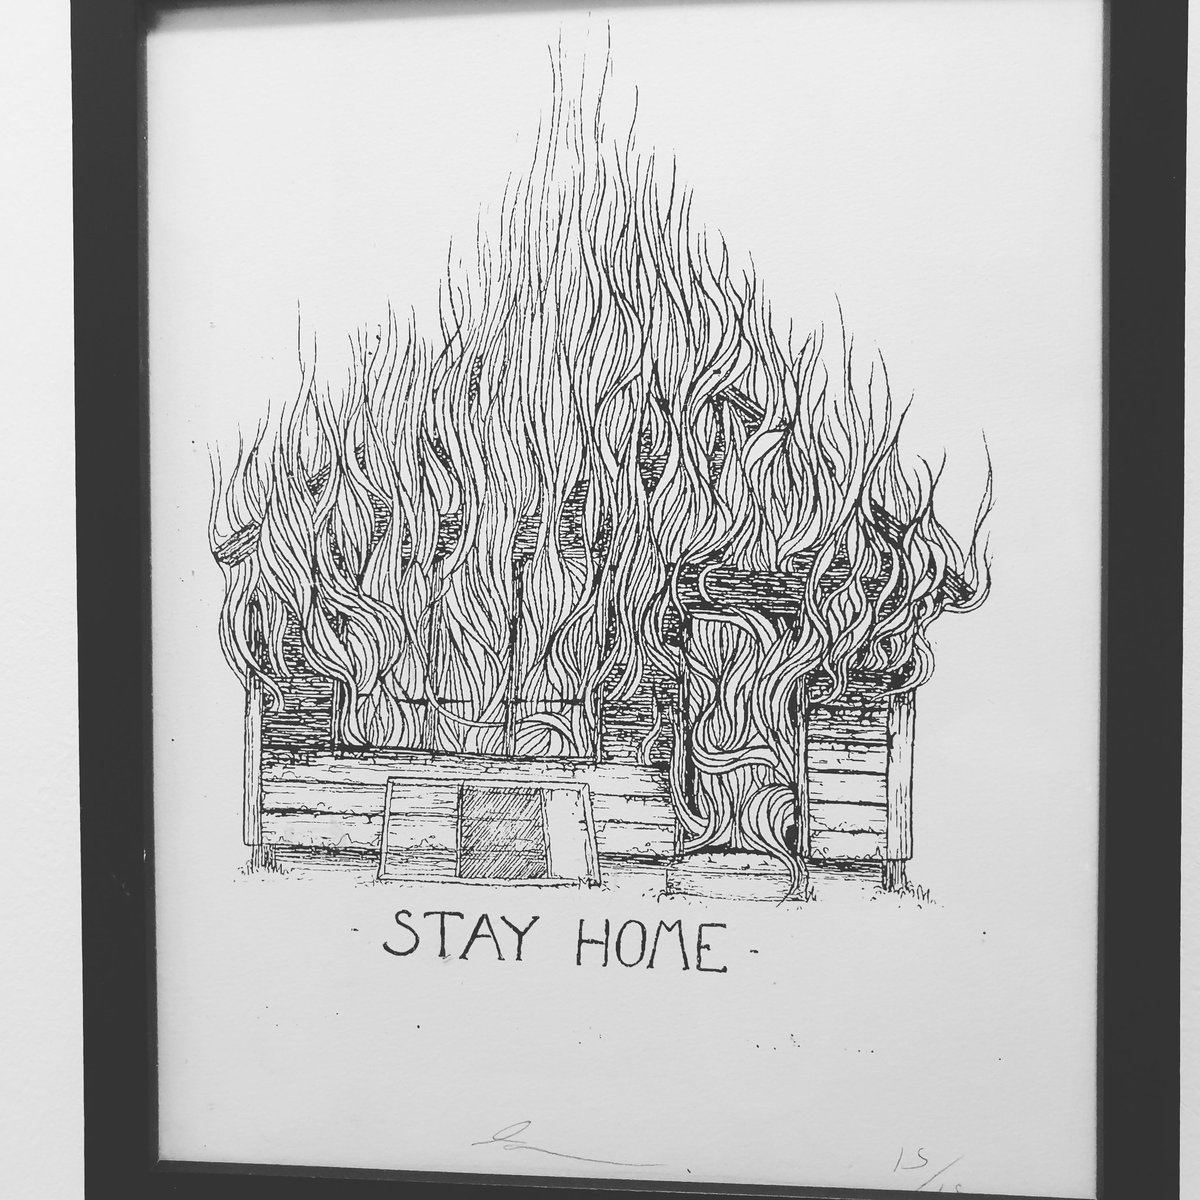 - STAY HOME -
15/15